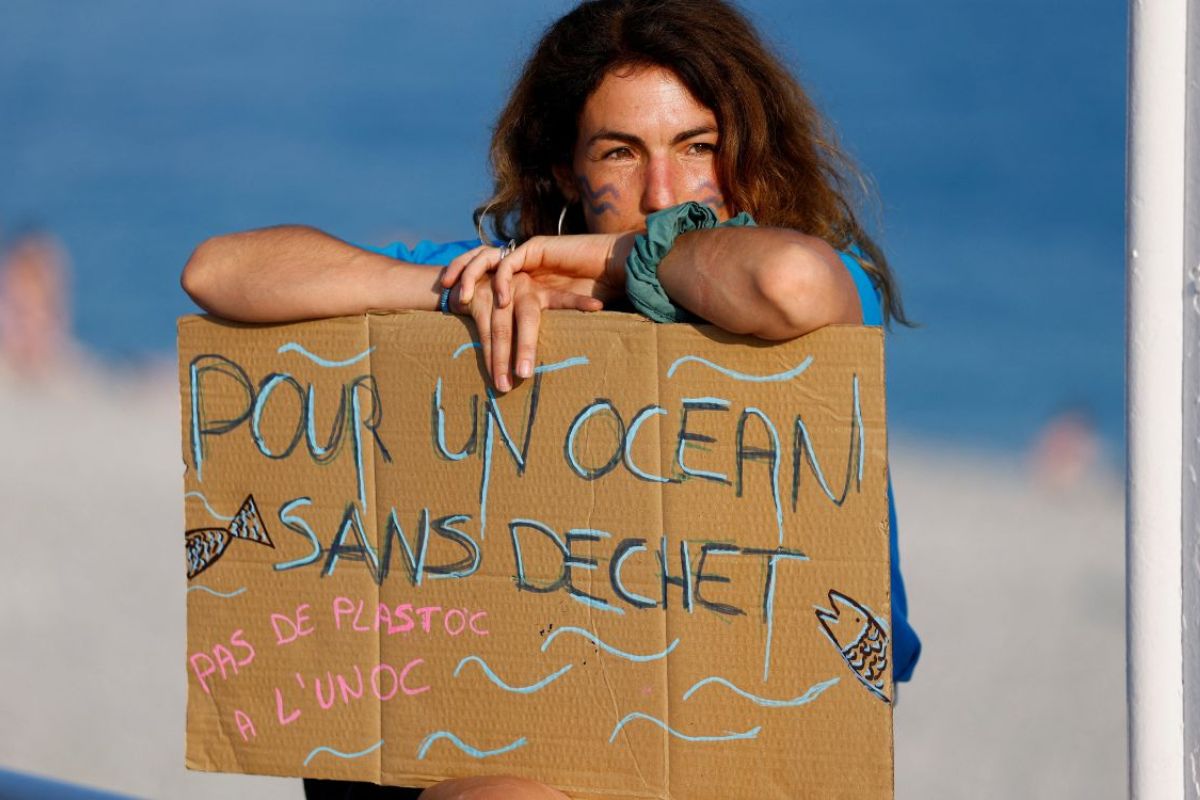 POUR UN OCEAN
SANS DECHET
PAS DE PLASTOC
A L'UNOC